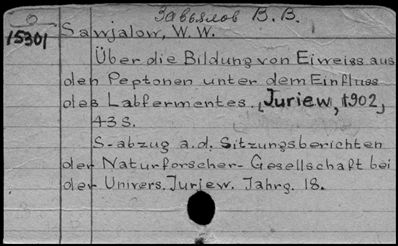 Завьялов В.В.
15301
Sawjalow, W.W.
Über die Bildung von Eiweiss aus
den Peptonen unter dem Einfluss
des Labfermentes. Juriew, 1902,
43 S.
S-abzug a.d. Sitzungsberichten
der Naturforscher-Gesellschaft bei
der Univers. Jurjew. Jahrg. 18.